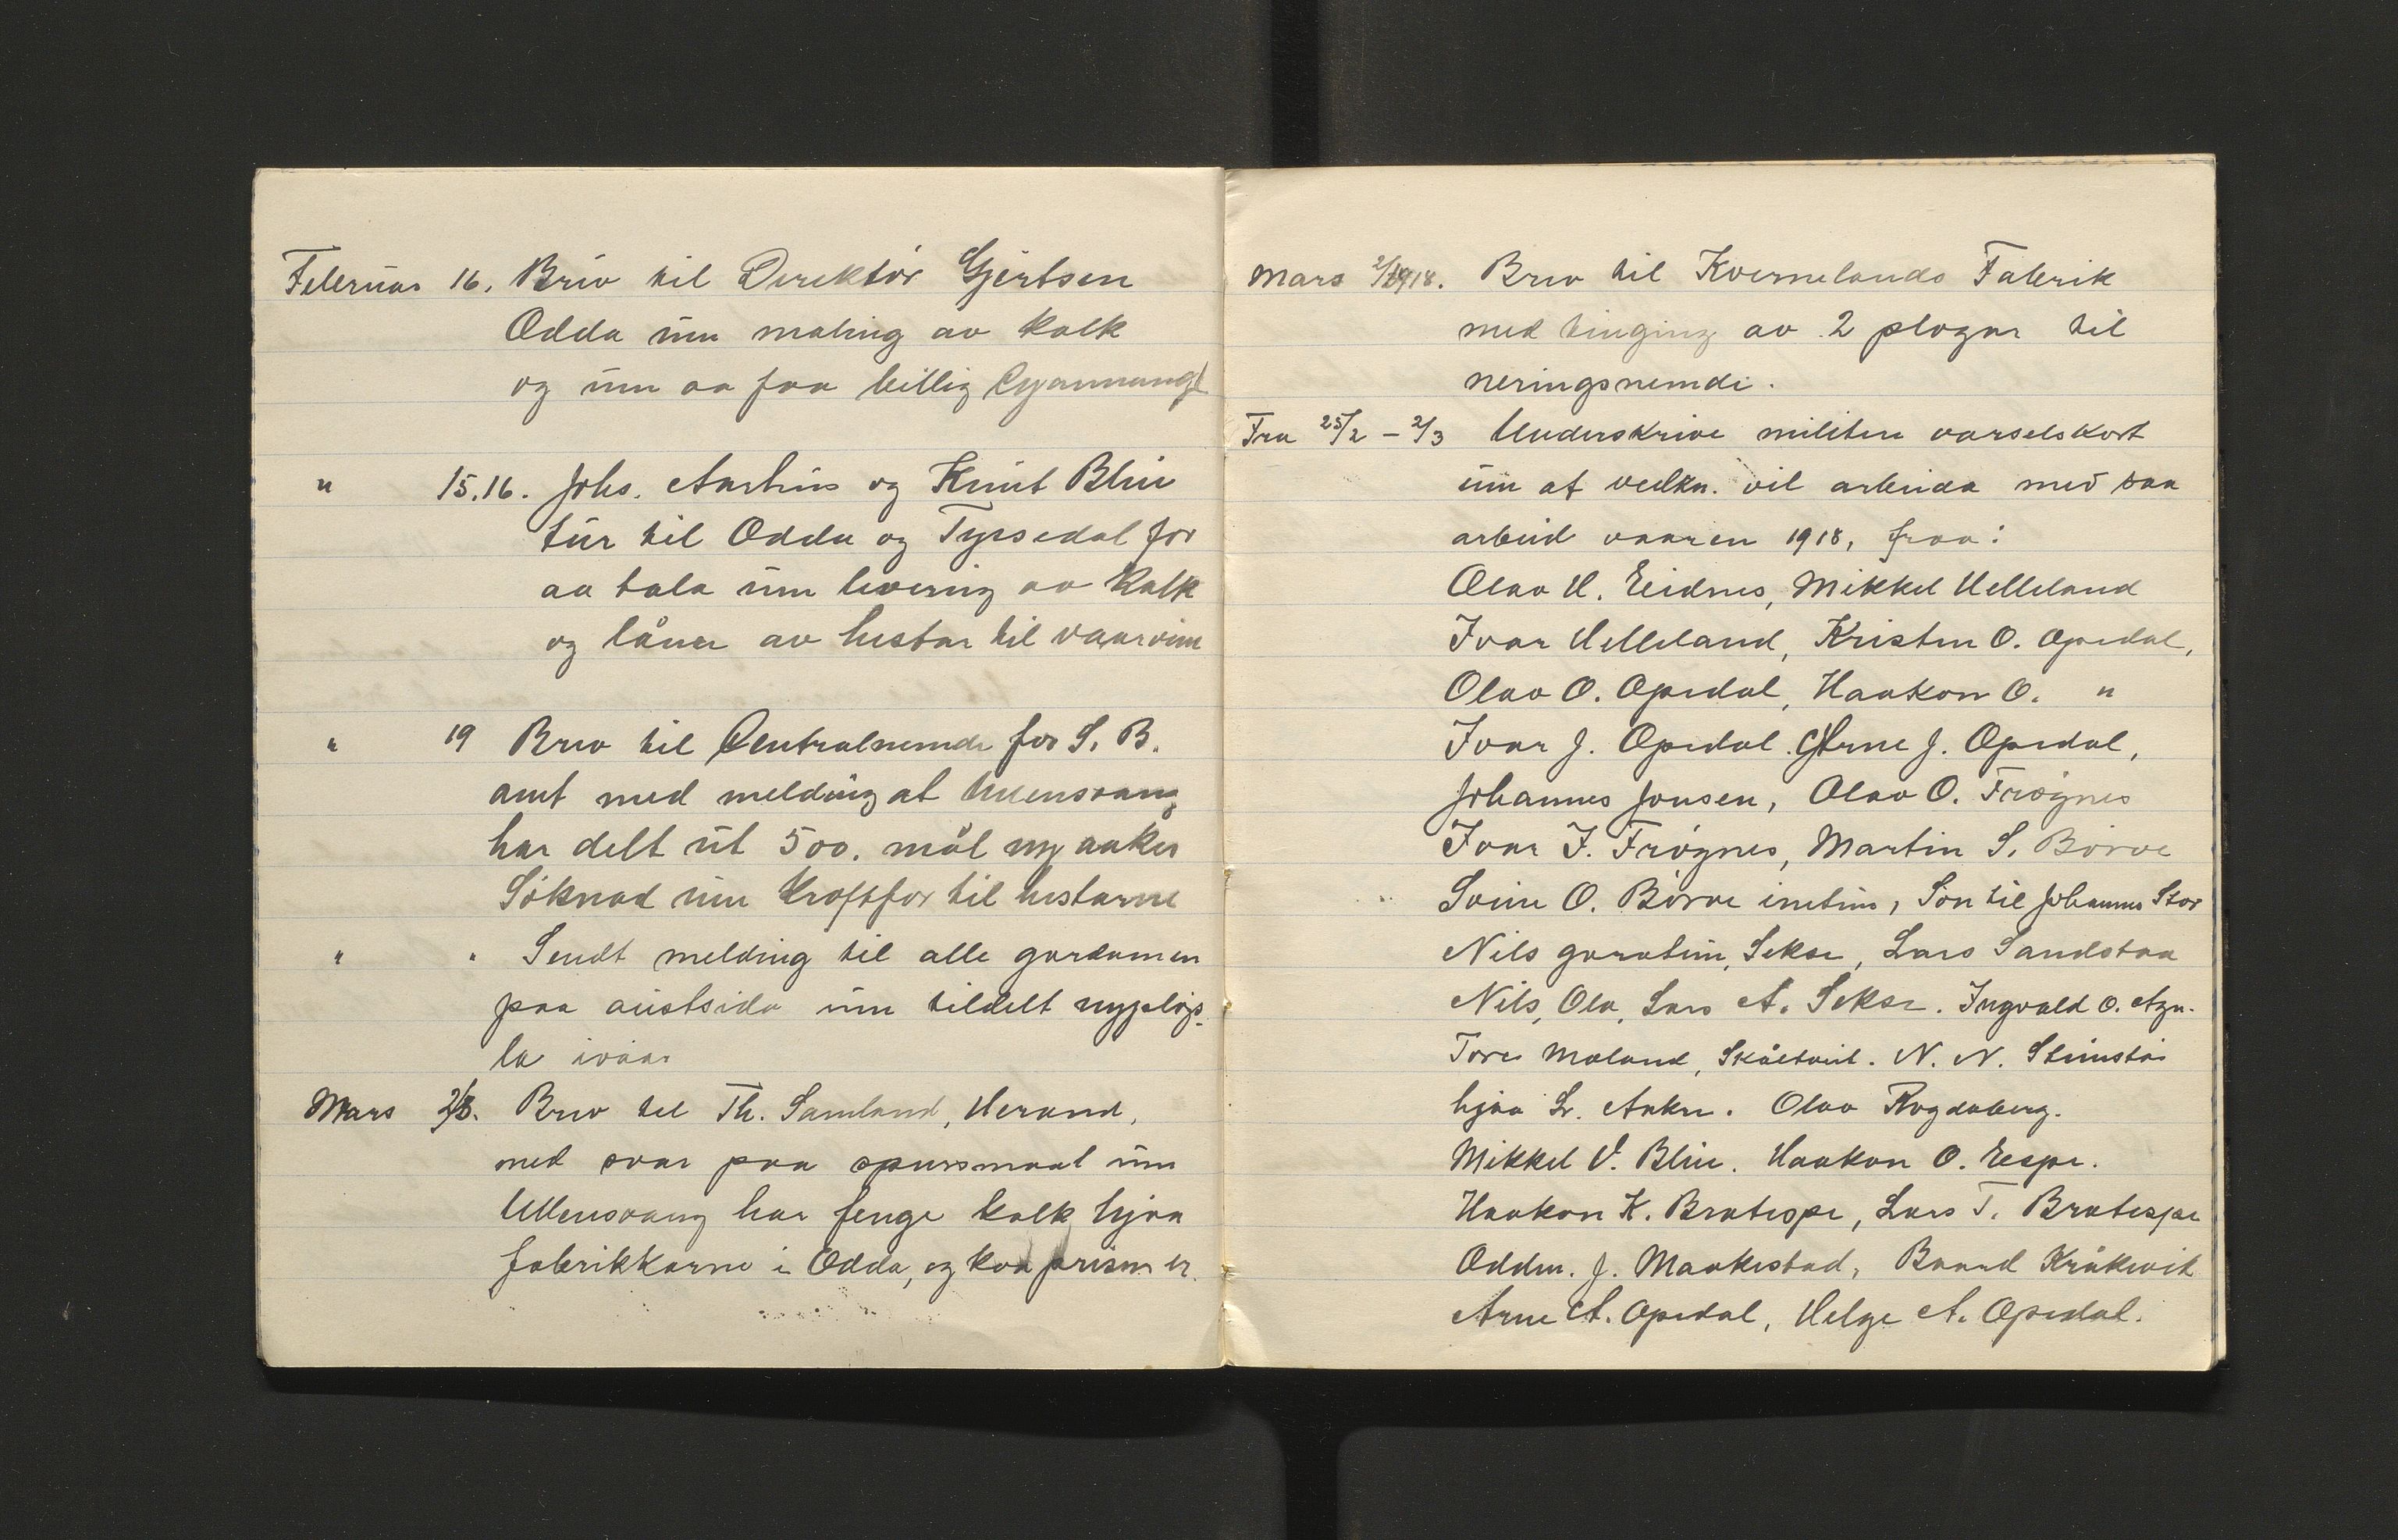 Februar 16. Brev til Direktör Gjertsen
Odda um maling av kalk
og um aa faa billig Cyannamgt
" 15.16. Johs. Aarhus og Knut Blie
tur til Odda og Tyssedal for
aa tala um levering av kalk
og låner av hestar til vaarvinn
" 19 Brev til Centralnemdi for S. B.
amt med melding at Ullensvang
har delt ut 500. mål ny aaker
Söknad um kraftfor til hestarne
" " Sendt melding til alle gardamen
paa austsida um tildelt nypløgs-
la ivaar
Mars 2/3. Brev til Th. Samland, Herand,
med svar paa spursmaal um
Ullensvang har fenge kalk hjaa
fabrikkarne i Odda, og kva prisen er.
Mars 2/1918. Brev til Kvernelands Fabrik
med tinging av 2 plogar til
neringsnemdi.
Fra 25/2 - 2/3 Underskrive militære varselskort
um at vedkn. vil arbeida med saa
arbeid vaaren 1918, fraa:
Olav H. Eidnes, Mikkel Helleland
Ivar Helleland, Kristen O. Opedal,
Olav O. Opedal, Haakon O. "
Ivar J. Opedal. Arne J. Opedal,
Johannes Jonsen, Olav O. Frøgnes
Ivar I. Frøgnes, Martin S. Börve
Svein O. Börve inetun, Son til Johannes Stor
Nils garatun, Sekse, Lars Sandstaa
Nils, Ola, Lars A. Sekse. Ingvald O. Aga.
Tore Moland, Skåltveit. N. N. Stunstái
hjaa L. Aake. Olav Rogdaberg.
Mikkel V. Blie. Haakon O. Espe.
Haakon K. Bratespe, Lars T. Bratespe
Oddm. J. Maakestad, Baard Kråkevik
Arne A. Opedal, Helge A. Opedal.